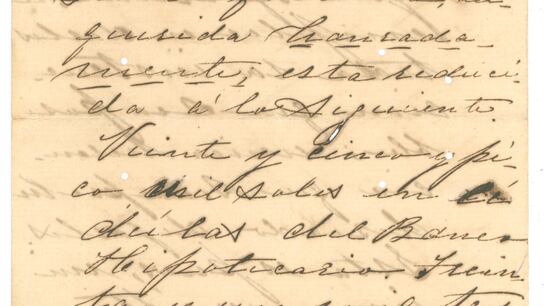 quirida honrada-
mente, esta reduci-
da á lo siguiente.
Viente y cinco y pi-
co mil soles en cé
dúlas del Banco
Hipotecario. Trein
ta y un